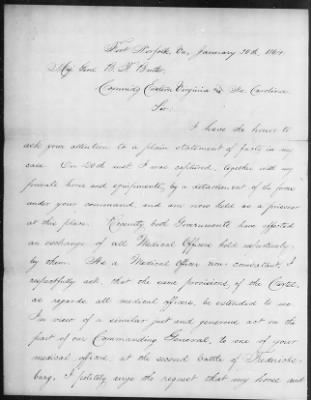 Fort Norfolk, Va, January 30th, 1864.
Maj. Genl B. F. Butler
Command'g Eastern Virginia & No. Carolina
Sir:
I have the honor to
ask your attention to a plain statement of facts in my
case. On 20th inst. I was captured, together with my
private horse and equipments, by a detachment of the force
under your command, and am now held as a prisoner
at this place. Recently, both Governments have effected
an exchange of all Medical Officers held
by them. As a Medical Officer non-combatant, I
respectfully ask, that the same provisions, of the Cartel
as regards all medical officers, be extended to me
In view of a similar just and generous act on the
part of our Commanding General, to one of your
medical officers, at the second battle of Fredericks-
burg, I urge the request that my horse and